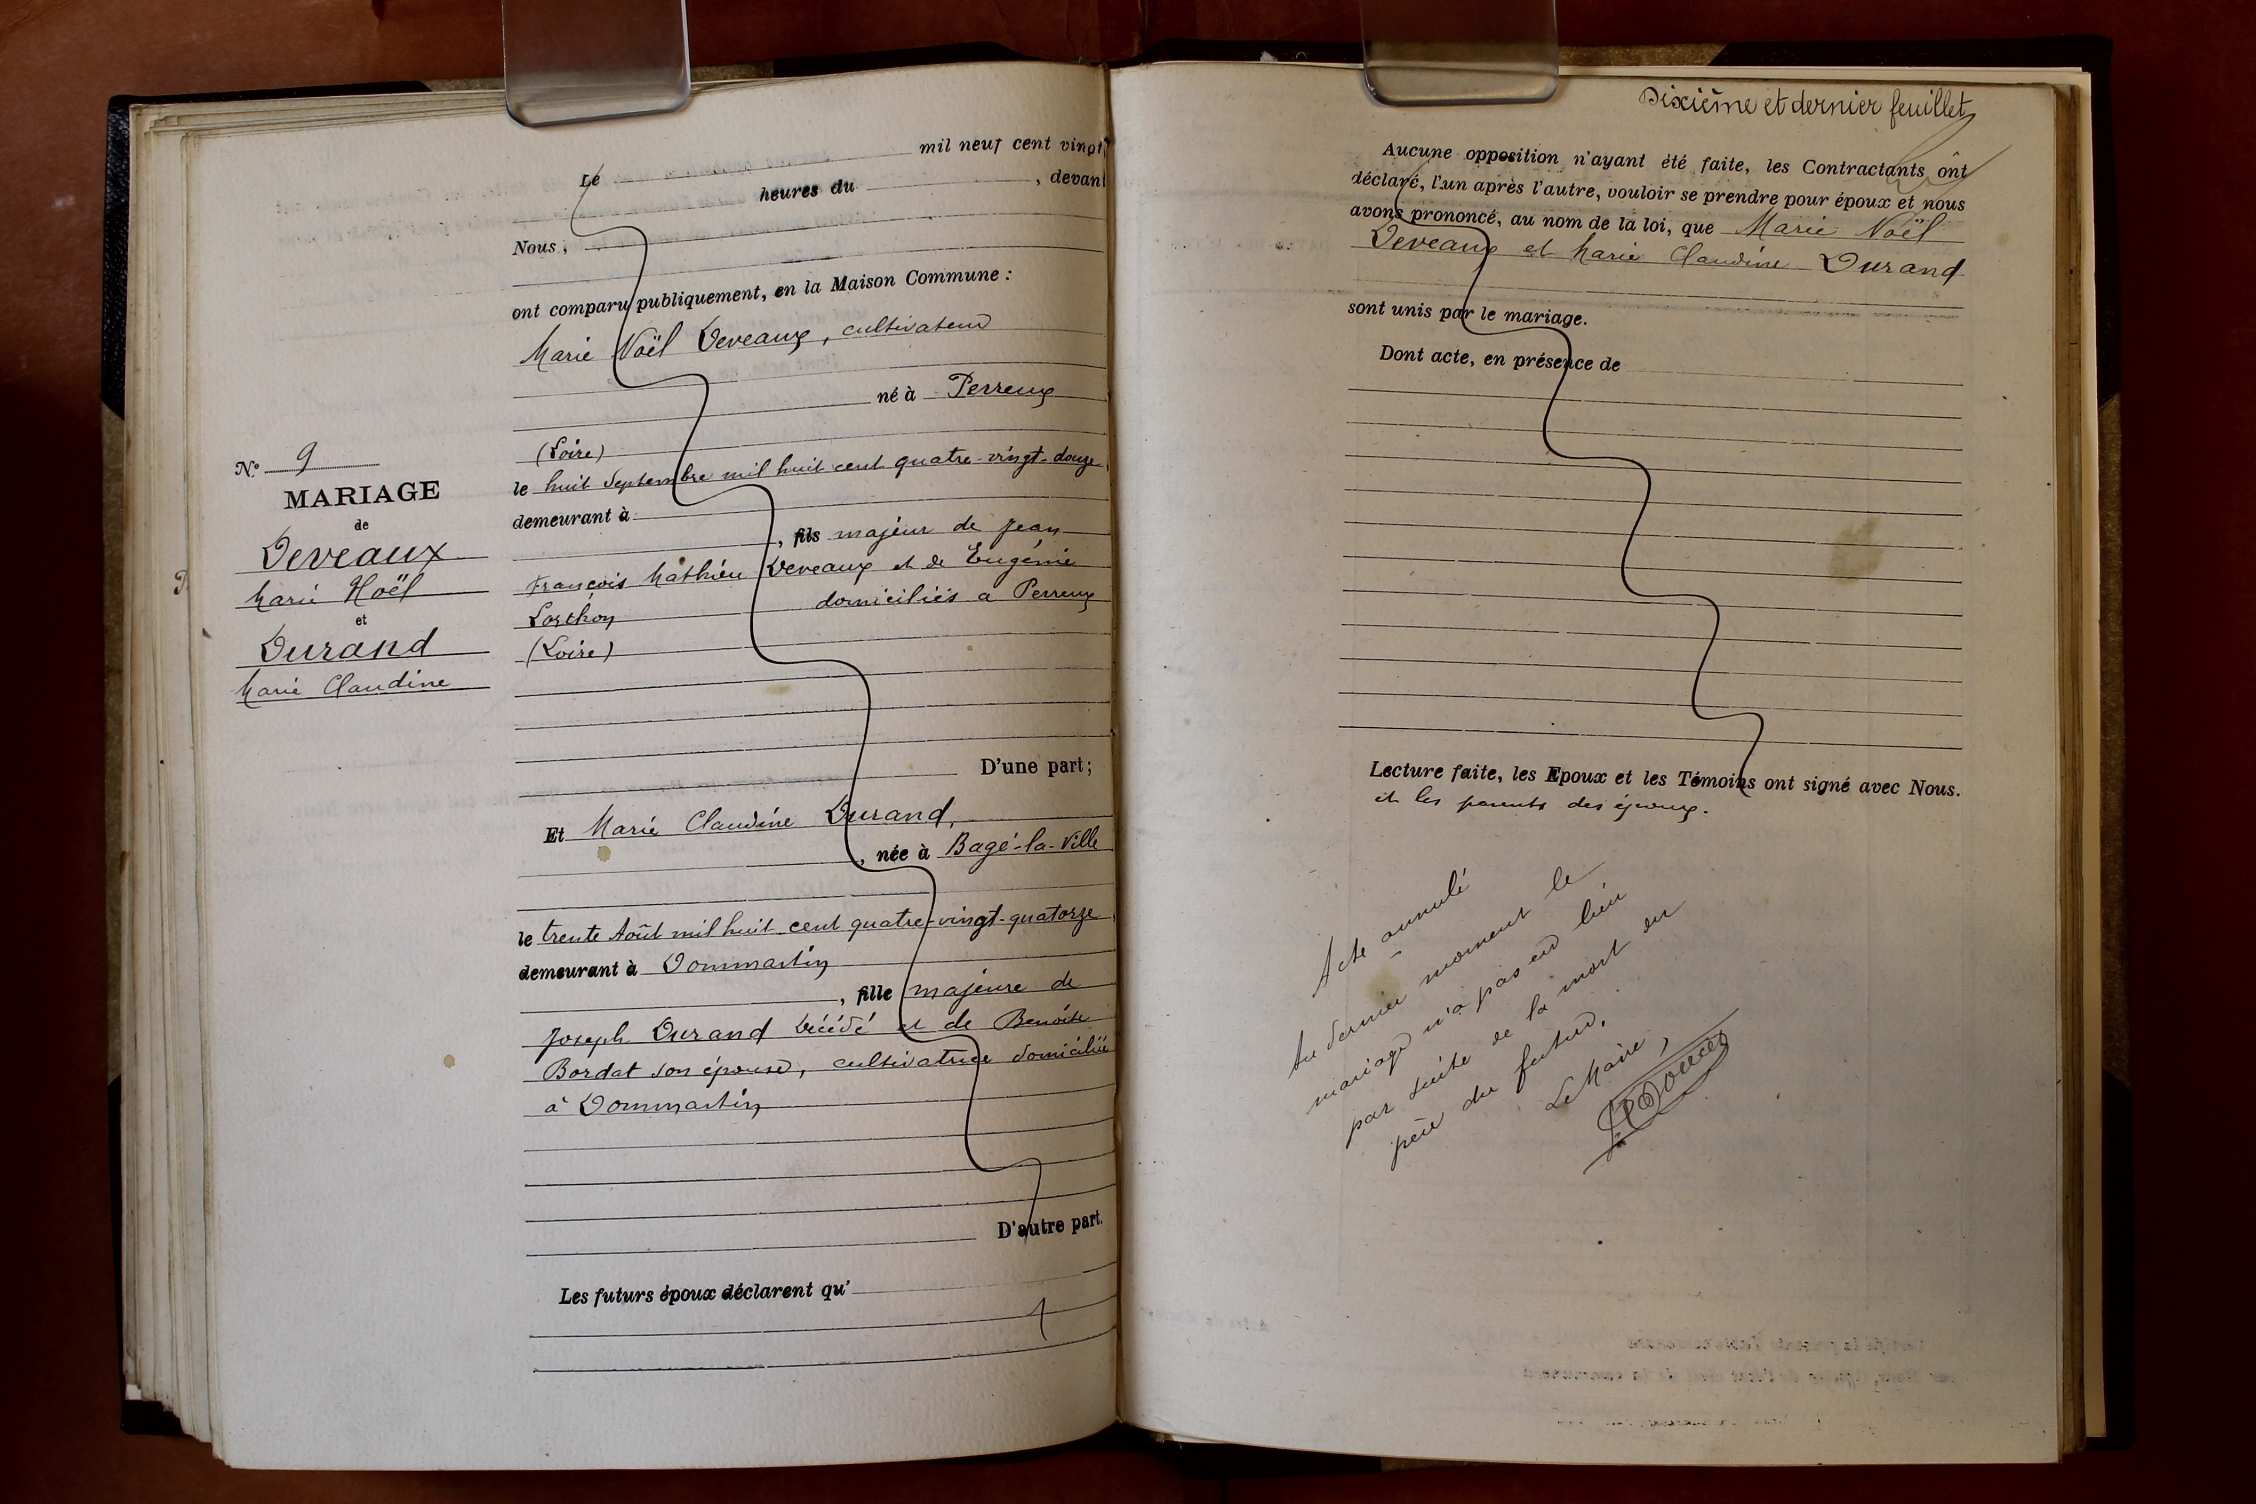 mil neuf cent vingt
Le heures du , devant
Nous,
ont comparu publiquement, en la Maison Commune :
Marie Noël Deveaux, cultivateur
né à Perreux
(Loire)
le huit Septembre mil huit cent quatre-vingt-douze
demeurant à
, fils majeur de Jean
François Mathieu Deveaux et de Eugénie
domiciliés à Perreux
(Loire)
D'une part ;
N° 9
MARIAGE
de
Deveaux
Marie Noël
et
Durand
Marie Claudine
Et Marie Claudine Durand,
, née à Bagé-la-Ville
le trente Août mil huit cent quatre-vingt-quatorze
demeurant à Dommartin
, fille majeure de
Joseph Durand décédé et de Benoîte
Bordat son épouse, cultivatrice domiciliée
à Dommartin
D'autre part.
Les futurs époux déclarent qu'
Dixième et dernier feuillet
Aucune opposition n'ayant été faite, les Contractants ont
déclaré, l'un après l'autre, vouloir se prendre pour époux et nous
avons prononcé, au nom de la loi, que Marie Noël
Deveaux et Marie Claudine Durand
sont unis par le mariage.
Dont acte, en présence de
Lecture faite, les Epoux et les Témoins ont signé avec Nous.
et les parents des époux.
Acte annulé
Au dernier moment le
mariage n'a pas eu lieu
par suite de la mort du
père du futur.
Le Maire,